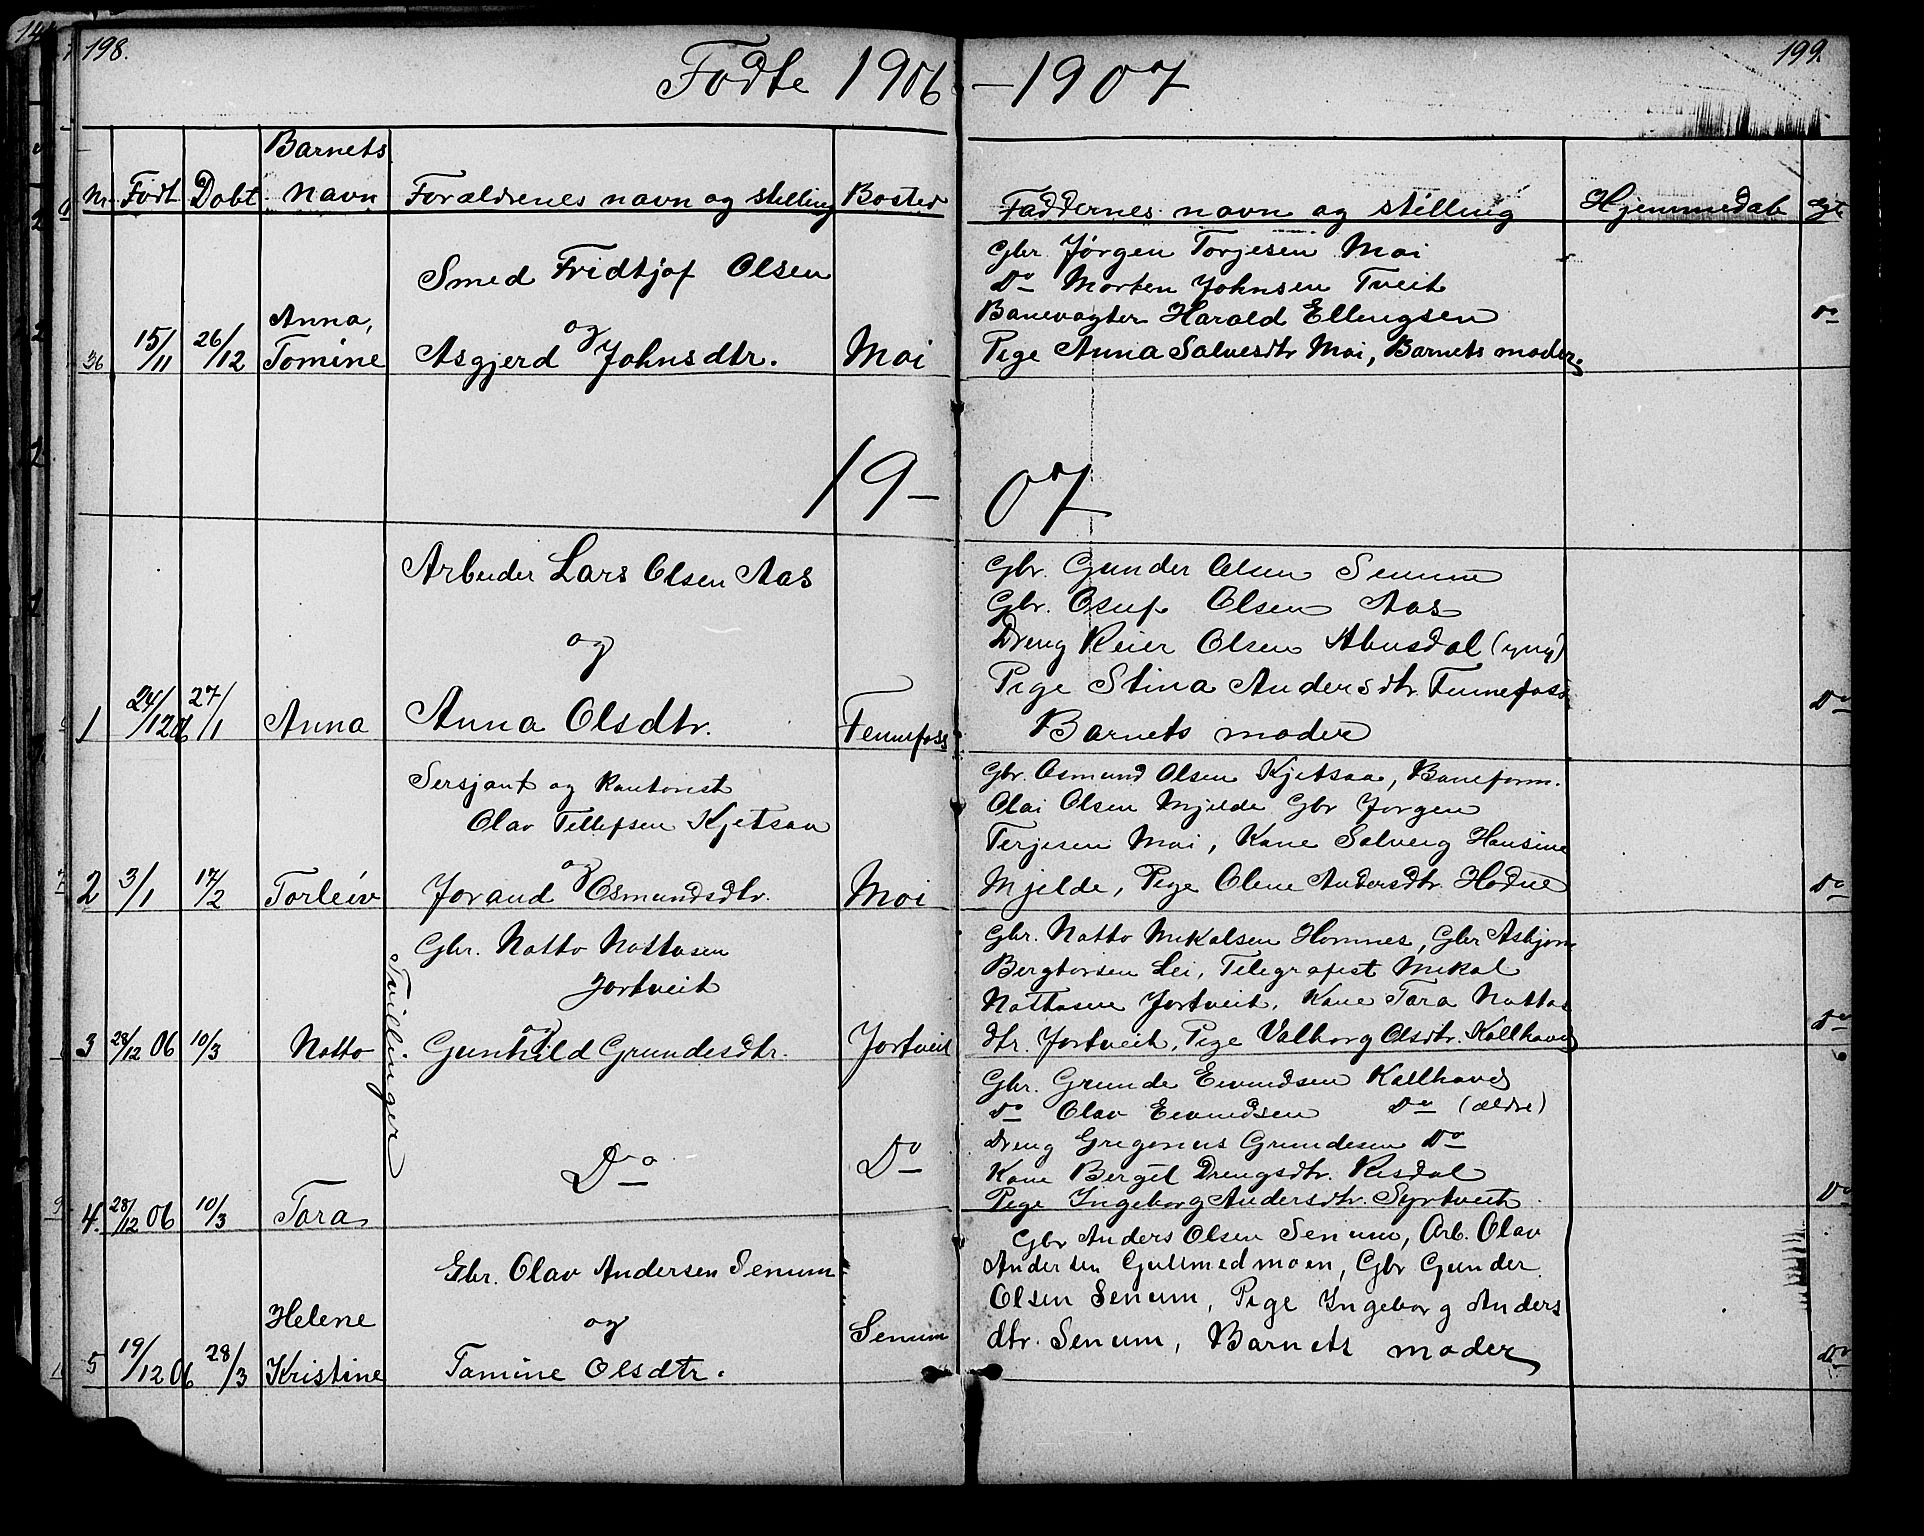 198.
199.
Fødte 1906 - 1907
Nr. Født Døbt Barnets navn Forældrenes navn og stilling Bosted
Faddernes navn og stilling Hjemmedøb
36 15/11 26/12 Anna, Tomine
Smed Fridtjof Olsen
og
Asgjerd Johnsdtr.
Moi
Gbr. Jørgen Torjesen Moi
Do Morten Johnsen Tveit
Banevogter Harald Ellingsen
Pige Anna Salvesdtr Moi, Barnets moder.
Do
19-07
1 24/12 06 27/1 Anna
Arbeider Lars Olsen Aas
og
Anna Olsdtr.
Fennefoss
Gbr. Gunder Olsen Senum
Gbr. Osuf Olsen Aas
Dreng Reier Olsen Abusdal (yng)
Pige Stina Andersdtr. Fennefoss
Barnets moder
Do
2 3/1 17/2 Torleiv
Sersjant og Kantorist
Olav Tellefsen Kjetsaa
og
Jorand Osmundsdtr.
Moi
Gbr. Osmund Olsen Kjetsaa, Baneform.
Olai Olsen Mjelde, Gbr Jørgen
Terjesen Moi, Kone Solveig Hansine
Mjelde, Pige Olene Andersdtr. Hodne
Do
3 28/12 06 10/3 Notto
Tvillinger
Gbr. Notto Nottosen
Jortveit
og
Gunhild Grundesdtr.
Jortveit
Gbr. Notto Mikalsen Homnes, Gbr Asbjørn
Bergtorsen Lei, Telegrafist Mikal
Nottosen Jortveit, Kone Tara Nottos
dtr. Jortveit, Pige Valborg Olsdtr. Kallhovd
Do
4. 28/12 06 10/3 Tara
Do
Do
Gbr. Grunde Eivindsen Kallhovd
Do Olav Eivindsen Do (ældre)
Dreng Gregorius Grundesen Do
Kone Bergit Drengsdtr. Risdal
Pige Ingeborg Andersdtr. Syrtveit
Do
5 19/12 06 28/3 Helene Kristine
Gbr. Olav Andersen Senum
og
Tomine Olsdtr.
Senum
Gbr Anders Olsen Senum, Arb. Olav
Andersen Gullsmedmoen, Gbr Gunder
Olsen Senum, Pige Ingeborg Anders
dtr. Senum, Barnets moder
Do